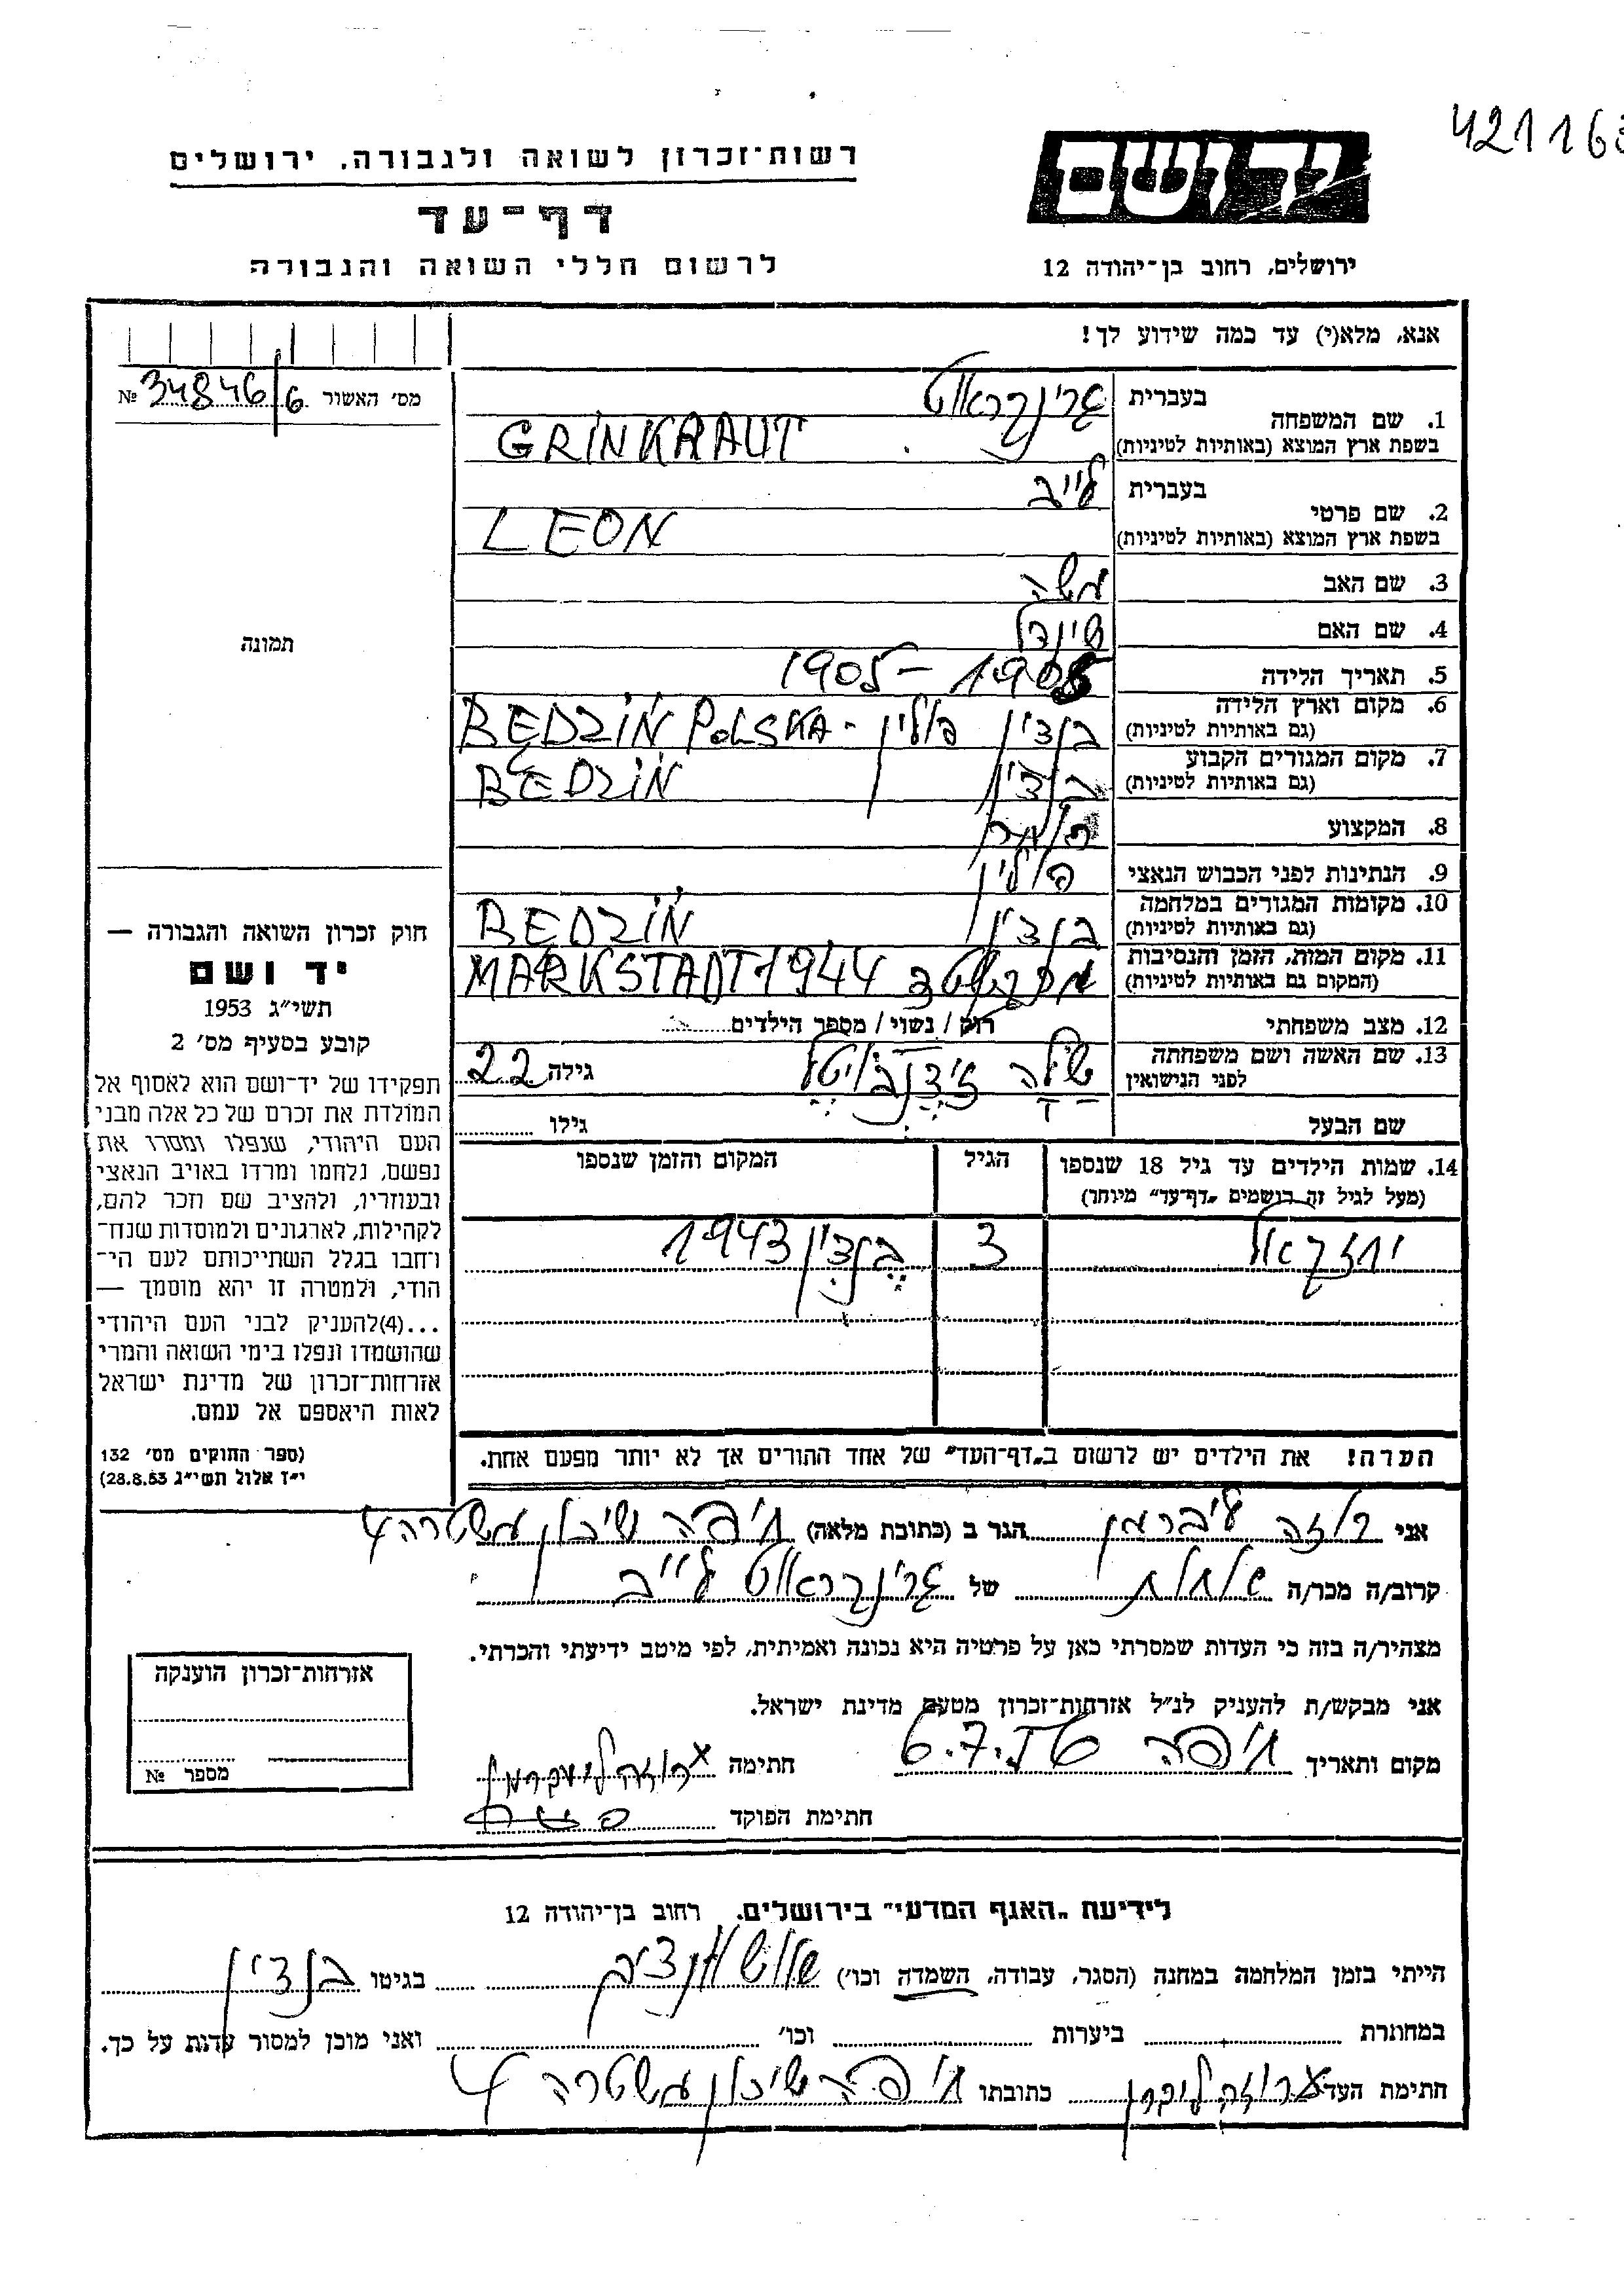 421163
יד ושם
רשות־זכרון לשואה ולגבורה, ירושלים
דף־עד
לרשום חללי השואה והגבורה
ירושלים, רחוב בן־יהודה 12
אנא, מלא(י) עד כמה שידוע לך!
מס׳ האשור 34846/6 №
1. שם המשפחה
בעברית גרינקראוט
בשפת ארץ המוצא (באותיות לטיניות) GRINKRAUT
2. שם פרטי
בעברית לייב
בשפת ארץ המוצא (באותיות לטיניות) LEON
3. שם האב משה
4. שם האם שינדל
5. תאריך הלידה 1905 – 1905
6. מקום וארץ הלידה
(גם באותיות לטיניות) בנדzין פולין - BĘDZIŃ POLSKA
7. מקום המגורים הקבוע
(גם באותיות לטיניות) בנדין BĘDZIŃ
8. המקצוע
9. הנתינות לפני הכבוש הנאצי פולין
10. מקומות המגורים במלחמה
(גם באותיות לטיניות) בנצין BĘDZIŃ
11. מקום המות, הזמן והנסיבות
(המקום גם באותיות לטיניות) MARKSTADT 1944
12. מצב משפחתי רווק / נשוי / מספר הילדים
13. שם האשה ושם משפחתה
לפני הנישואין גילה 22
שם הבעל גילו
14. שמות הילדים עד גיל 18 שנספו
(מעל לגיל זה רושמים „דף־עד” מיוחד)
הגיל
המקום והזמן שנספו
יחזקאל 3 בנצין 1943
הערה! את הילדים יש לרשום ב„דף־העד” של אחד ההורים אך לא יותר מפעם אחת.
תמונה
חוק זכרון השואה והגבורה —
יד ושם
תשי״ג 1953
קובע בסעיף מס׳ 2
תפקידו של יד־ושם הוא לאסוף אל
המולדת את זכרם של כל אלה מבני
העם היהודי, שנפלו ומסרו את
נפשם, נלחמו ומרדו באויב הנאצי
ובעוזריו, ולהציב שם וזכר להם,
לקהילות, לארגונים ולמוסדות שנח־
רחבו בגלל השתייכותם לעם הי־
הודי, ולמטרה זו יהא מוסמך —
...(4)להעניק לבני העם היהודי
שהושמדו ונפלו בימי השואה והמרי
אזרחות־זכרון של מדינת ישראל
לאות היאספם אל עמם.
(ספר החוקים מס׳ 132
י״ז אלול תשי״ג 28.8.53)
אני רוזה ליברמן הגר ב (כתובת מלאה) חיפה שיכון משטרה 4
קרוב/ה מכר/ה של גרינקראוט לייב
מצהיר/ה בזה כי העדות שמסרתי כאן על פרטיה היא נכונה ואמיתית, לפי מיטב ידיעתי והכרתי.
אני מבקש/ת להעניק לנ״ל אזרחות־זכרון מטעם מדינת ישראל.
מקום ותאריך חיפה 6.7. חתימה
חתימת הפוקד
אזרחות־זכרון הוענקה
מספר №
לידיעת „האגף המדעי” בירושלים. רחוב בן־יהודה 12
הייתי בזמן המלחמה במחנה (הסגר, עבודה, השמדה וכו׳) בגיטו בנדין
במחתרת ביערות וכו׳ ואני מוכן למסור עדות על כך.
חתימת העד כתובתו חיפה שיכון משטרה 4